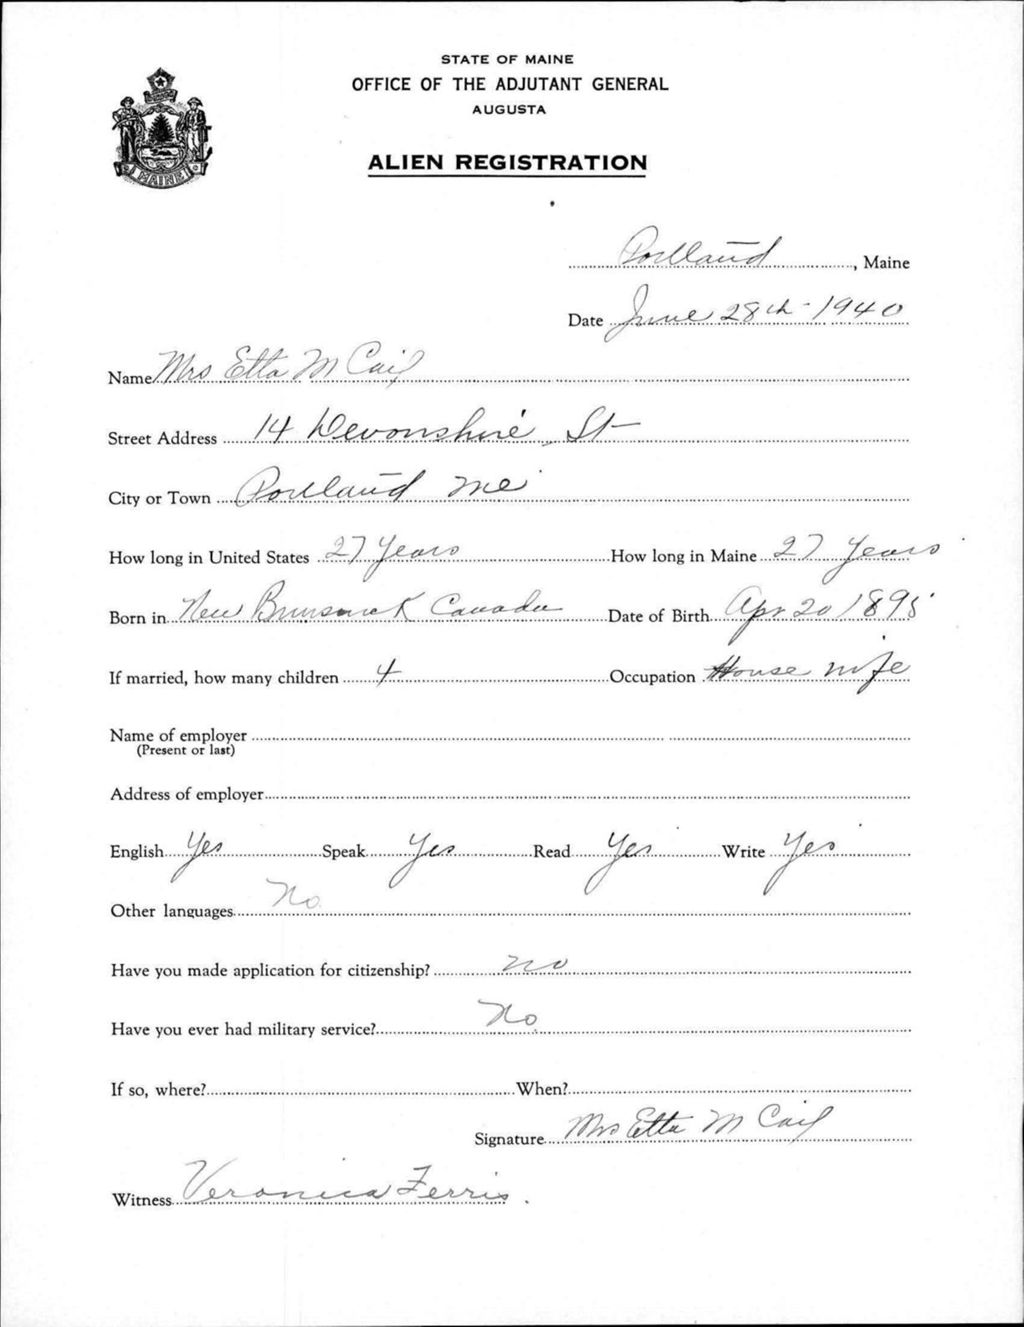 STATE OF MAINE
OFFICE OF THE ADJUTANT GENERAL
AUGUSTA
ALIEN REGISTRATION
MAINE
Portland, Maine
Date June 28th - 1940
Name Mrs Etta M Cail
Street Address 14 Devonshire St
City or Town Portland Me
How long in United States 27 Years How long in Maine 27 Years
Born in New Brunswick Canada Date of Birth Apr 20 1895
If married, how many children 4 Occupation House wife
Name of employer
(Present or last)
Address of employer
English Yes Speak Yes Read Yes Write Yes
Other languages No
Have you made application for citizenship? no
Have you ever had military service? No
If so, where? When?
Signature Mrs Etta M Cail
Witness Veronica Ferris.